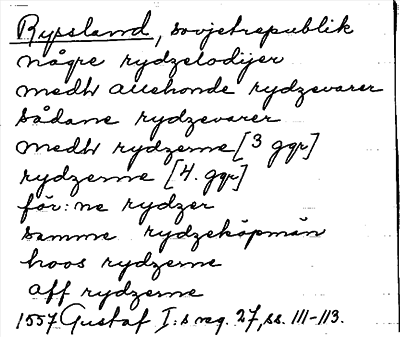 Ryssland, sovjetrepublik
någre rydzelodijer
medh allehonde rydzevarer
sådane rydzevarer
medh rydzerne [3 ggr]
rydzerne [4. ggr]
för:ne rydzer
samme rydzeköpmän
hoos rydzerne
aff rydzerne
1557 Gustaf I:s reg. 27, ss. 111-113.